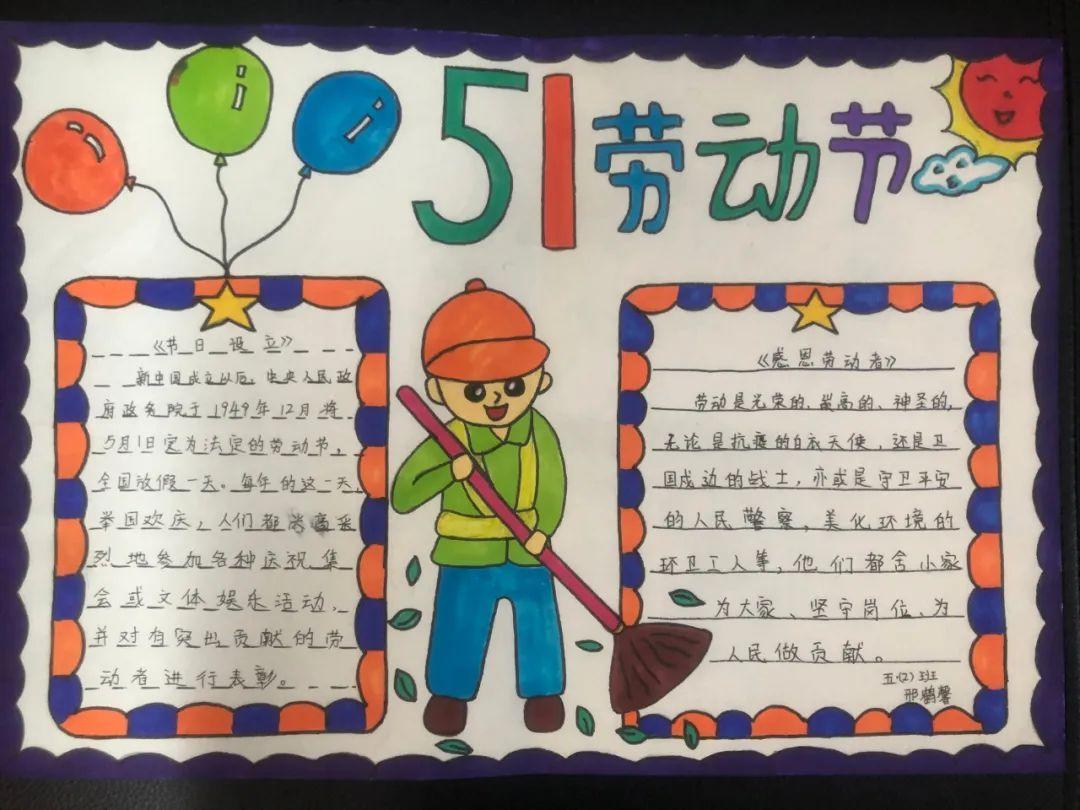 51劳动节
《节日设立》
新中国成立以后，中央人民政
府政务院于1949年12月将
5月1日定为法定的劳动节，
全国放假一天。每年的这一天，
举国欢庆，人们都兴高采
烈地参加各种庆祝集
会或文体娱乐活动，
并对有突出贡献的劳
动者进行表彰。
《感恩劳动者》
劳动是光荣的、崇高的、神圣的，
无论是抗疫的白衣天使，还是卫
国戍边的战士，亦或是守卫平安
的人民警察，美化环境的
环卫工人等，他们都舍小家
为大家、坚守岗位、为
人民做贡献。
五（2）班
邢鹤馨